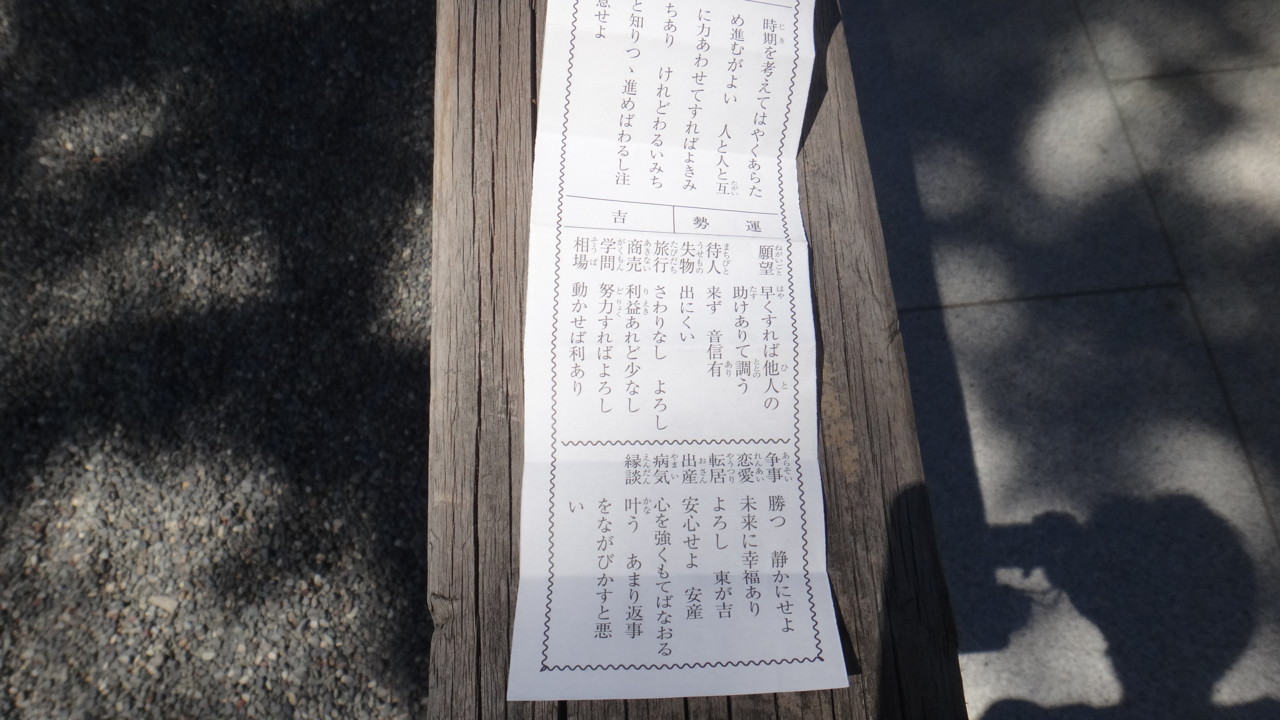 時期を考えてはやくあらた
め進むがよい 人と人と互
に力あわせてすればよきみ
ちあり けれどわるいみち
と知りつゝ進めばわるし注
意せよ
運勢 吉
願望 早くすれば他人の
助けありて調う
待人 来ず 音信有
失物 出にくい
旅行 さわりなし よろし
商売 利益あれど少なし
学問 努力すればよろし
相場 動かせば利あり
争事 勝つ 静かにせよ
恋愛 未来に幸福あり
転居 よろし 東が吉
出産 安心せよ 安産
病気 心を強くもてばなおる
縁談 叶う あまり返事
をながびかすと悪
い